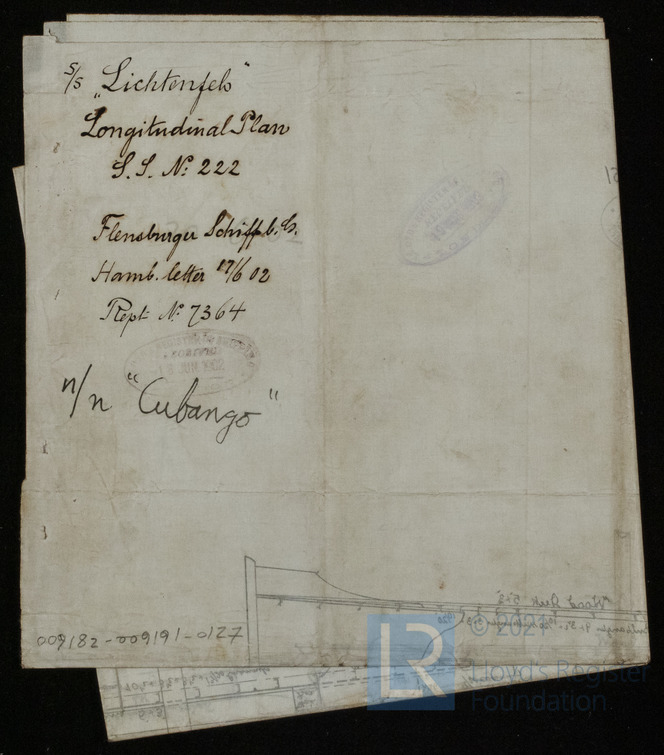 S/S "Lichtenfels"
Longitudinal Plan
S.S. No. 222
Flensburger Schiffb. G.
Hamb. letter 17/6 02
Rept. No. 7364
18 JUN 1902
n/n "Cubango"
009182-009191-0127
© 2021
Lloyd's Register
Foundation
LR